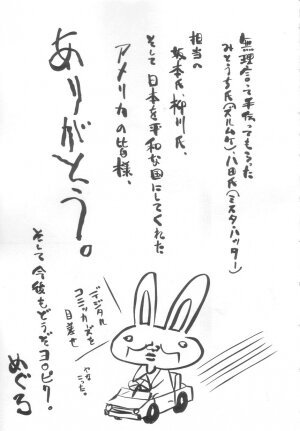 無理言って手伝ってもらった
みとうち氏(ズルムケ)、八田氏(ミスタ・ハッター)
担当の
坂本氏、柳川氏、
そして日本を平和な国にしてくれた
アメリカの皆様、
ありがとう。
そして今後もどうぞヨロピク!
めぐろ
デジタル
コミック犬を
目差せ